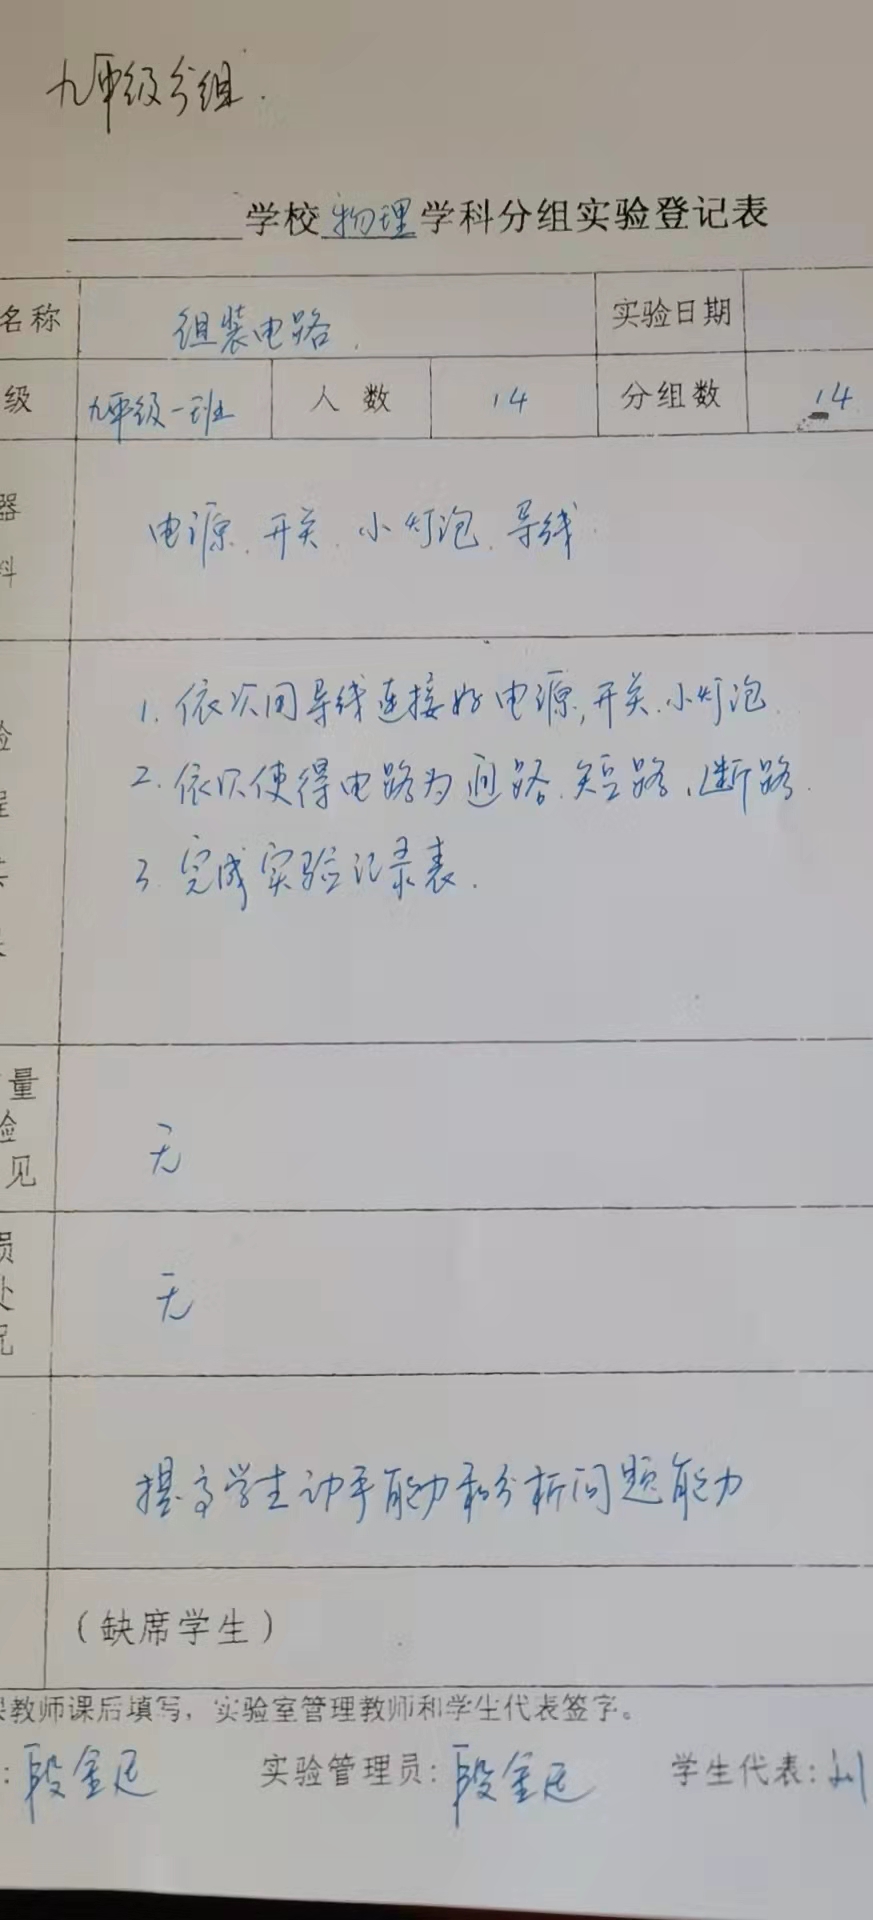 九年级分组.
学校物理学科分组实验登记表
名称 组装电路. 实验日期
级 九年级一班 人数 14 分组数 14
器
料
电源、开关、小灯泡、导线
1. 依次用导线连接好电源,开关、小灯泡
2. 依次使得电路为通路、短路、断路.
3. 完成实验记录表.
量
验
见
无
损
处
况
无
提高学生动手能力和分析问题能力
(缺席学生)
教师课后填写,实验室管理教师和学生代表签字。
: 段金 实验管理员: 段金 学生代表: